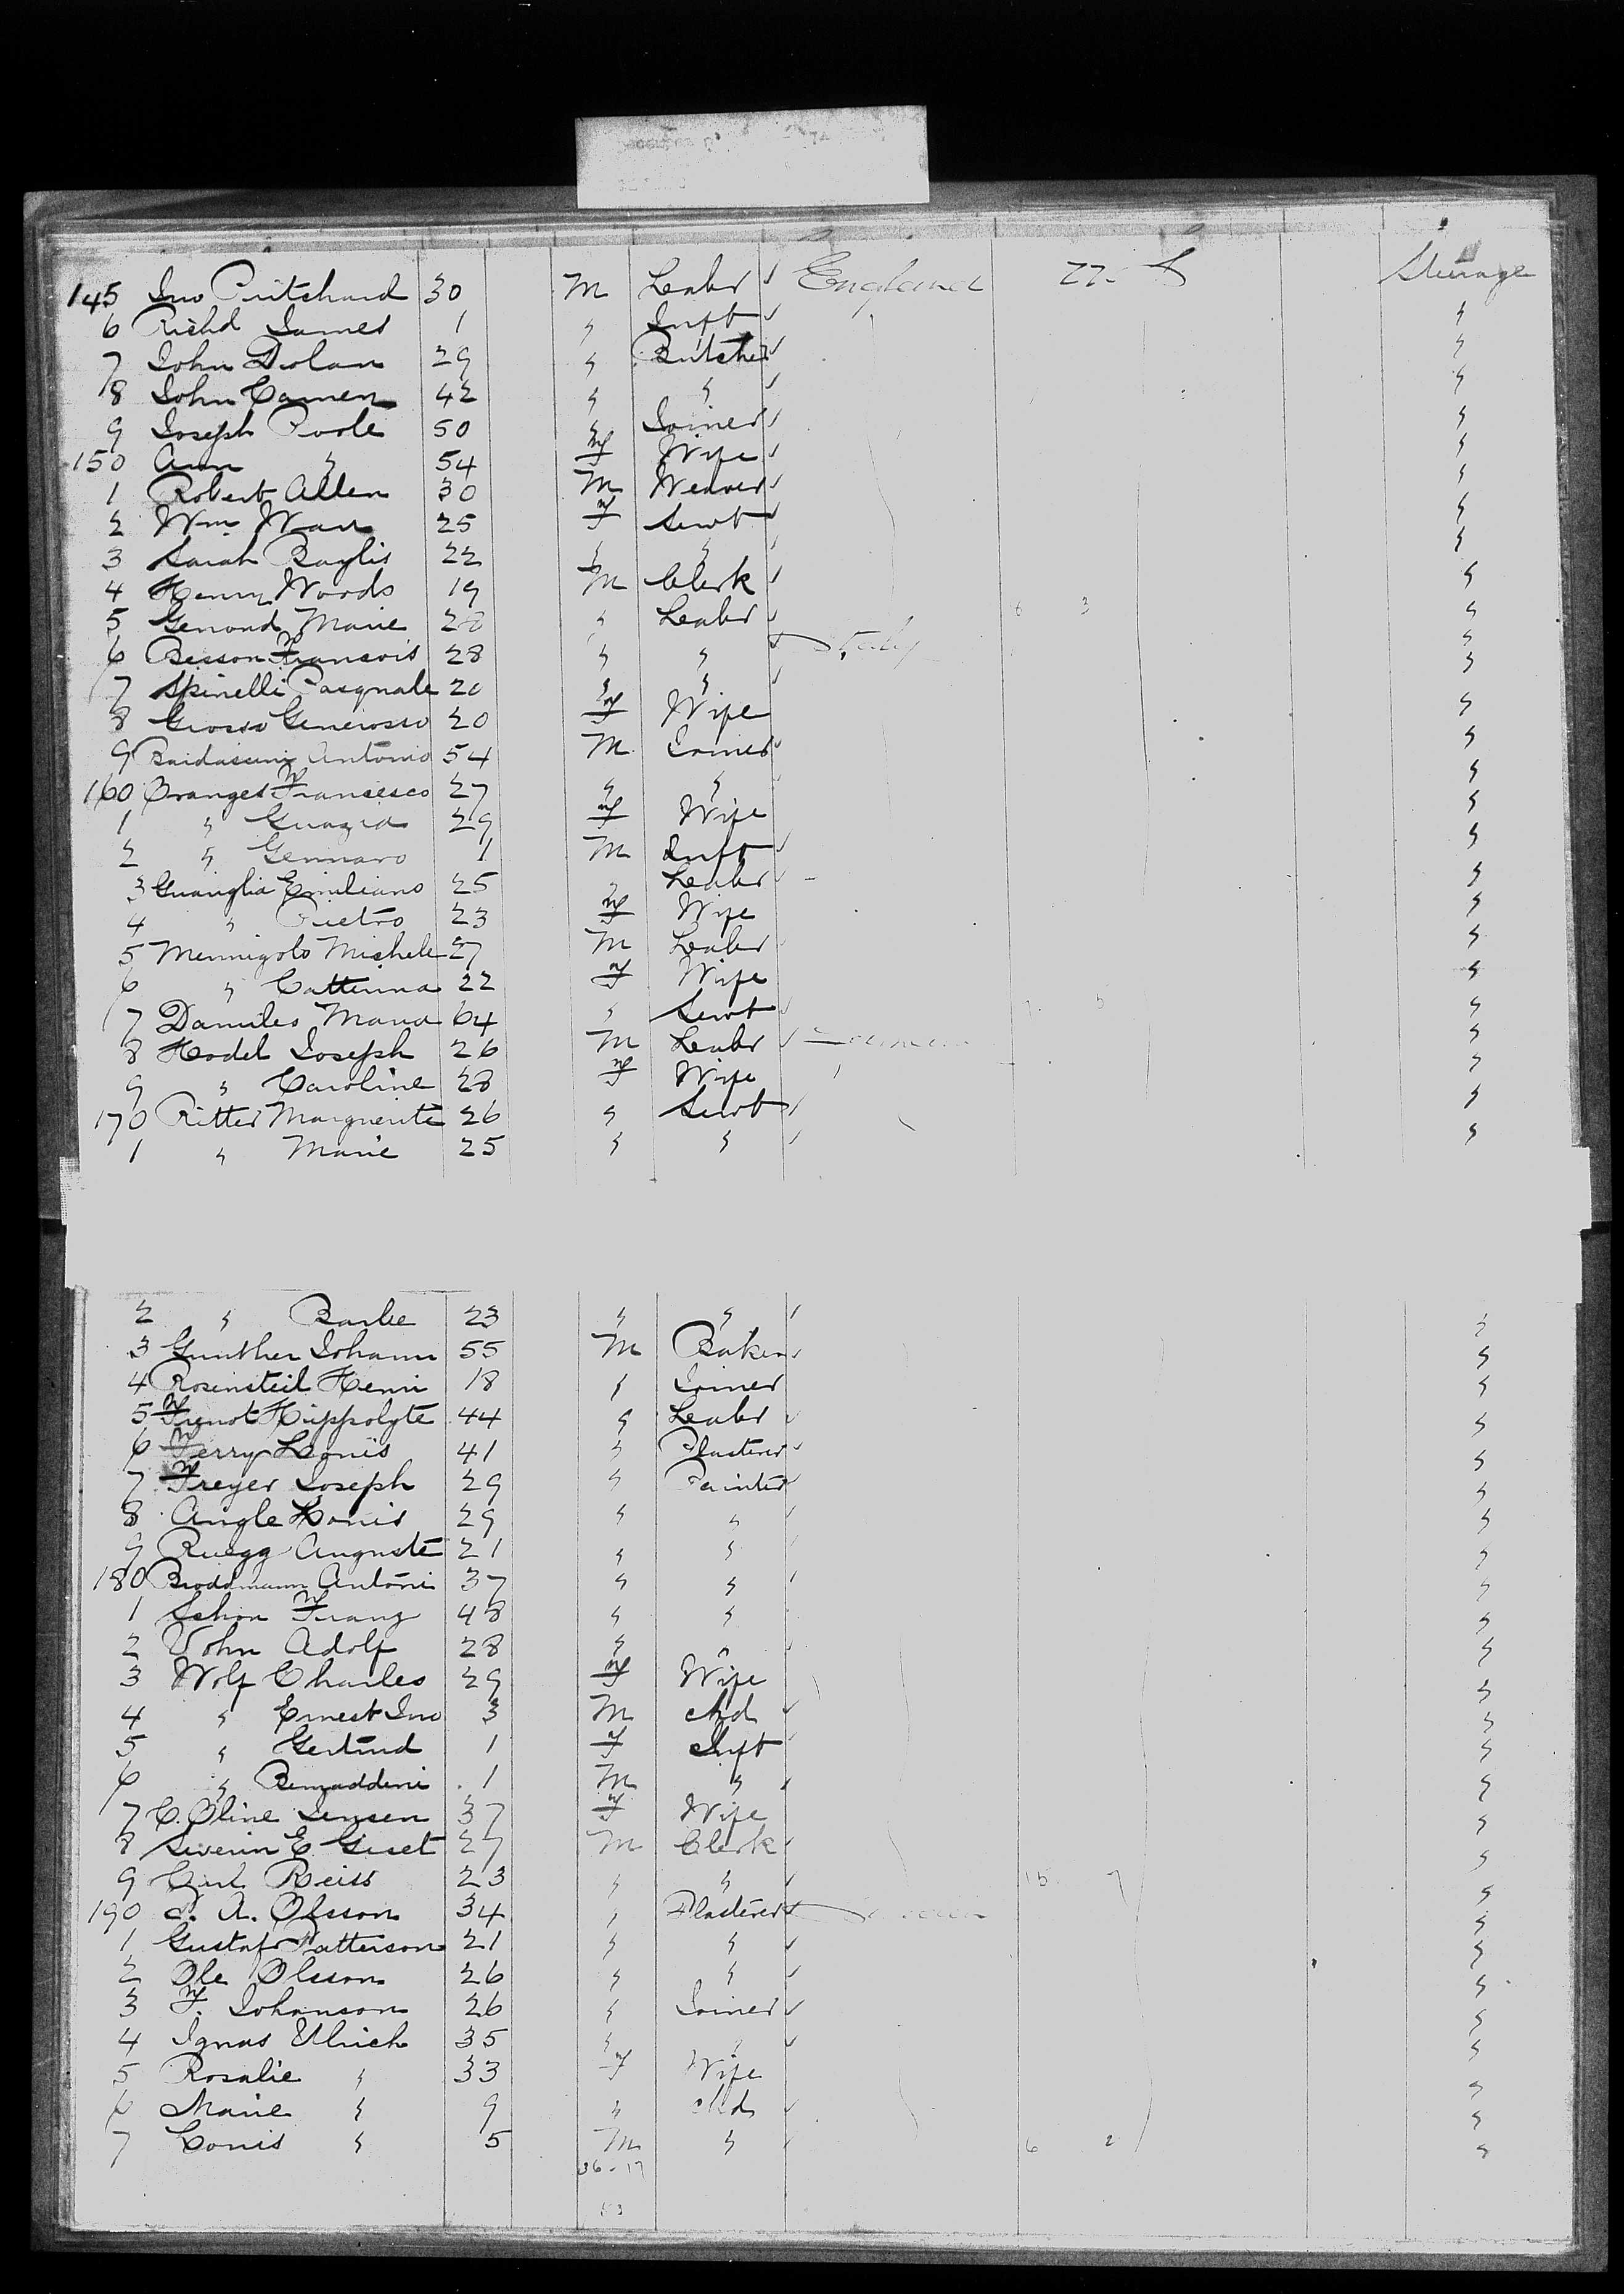 145 Jno Pritchard 30 M Leabr ✓ England U. S Steerage
6 Richd James 1 " Inft ✓ "
7 John Dolan 29 " Butcher ✓ "
8 John Camen 42 " " ✓ "
9 Joseph Poole 50 " Joiner ✓ "
150 Ann " 54 F Wife ✓ "
1 Robert Allen 30 M Weaver ✓ "
2 Wm Warr 25 F Servt ✓ "
3 Sarah Baylis 22 " " ✓ "
4 Henry Woods 19 M Clerk ✓ "
5 Genond Marie 28 " Leabr ✓ 6 3 "
6 Besson Francois 28 " " ✓ Italy "
7 Spinelli Pasquale 20 " " ✓ "
8 Grosso Generosso 20 F Wife "
9 Antonio 54 M Joiner ✓ "
160 Oranges Francesco 27 " " "
1 " Grazia 29 F Wife "
2 " Gennaro 1 M Inft ✓ "
3 Guariglia Emiliano 25 " Leabr ✓ "
4 " Pietro 23 F Wife "
5 Mennigolo Michele 27 M Leabr "
6 " Catterina 22 F Wife "
7 Damiles Maria 64 " Servt ✓ 7 5 "
8 Hodel Joseph 26 M Leabr ✓ "
9 " Caroline 28 F Wife "
170 Ritter Marguerite 26 " Servt ✓ "
1 " Marie 25 " " ✓ "
2 " Barbe 23 " " ✓ "
3 Gunther Johann 55 M Baker ✓ "
4 Rosensteil Henri 18 " Joiner "
5 Frenot Hippolyte 44 " Leabr ✓ "
6 Ferry Louis 41 " Plasterer ✓ "
7 Freyer Joseph 29 " Painter ✓ "
8 Angle Louis 29 " " "
9 Ruegg Auguste 21 " " "
180 Broddmann Antoni 37 " " "
1 Schon Franz 48 " " "
2 Vohn Adolf 28 " " "
3 Wolf Charles 29 F Wife "
4 " Ernest Jno 3 M Chd ✓ "
5 " Gertrud 1 F Inft "
6 " 1 M " ✓ "
7 C. Oline Jensen 37 F Wife "
8 Severin E. Giset 27 M Clerk ✓ "
9 Carl Reiss 23 " " ✓ 15 7 "
190 A. Olsson 34 " Plasterer ✓ "
1 Gustaf Patterson 21 " " ✓ "
2 Ole Olsson 26 " " ✓ "
3 F. Johanson 26 " Joiner ✓ "
4 Ignas Ulrich 35 " " ✓ "
5 Rosalie " 33 F Wife "
6 Marie " 9 " Chd ✓ "
7 Louis " 5 M " ✓ 6 2 "
36-17
53